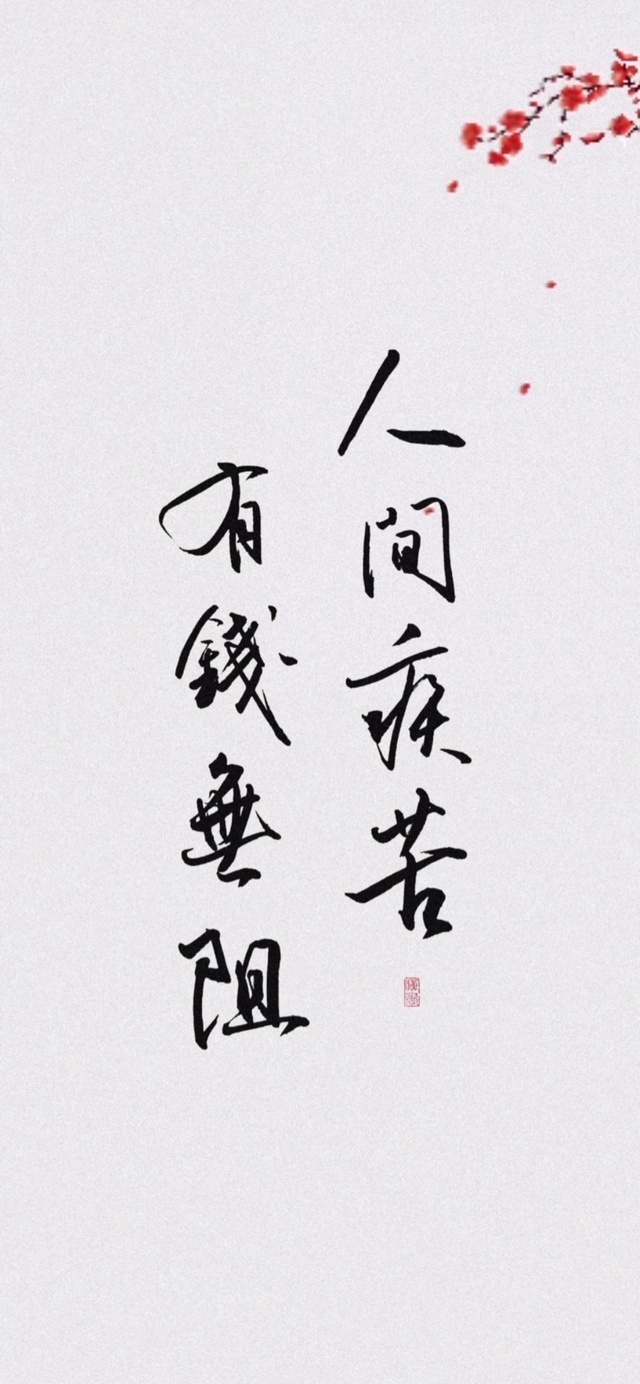 人間疾苦
有錢無阻